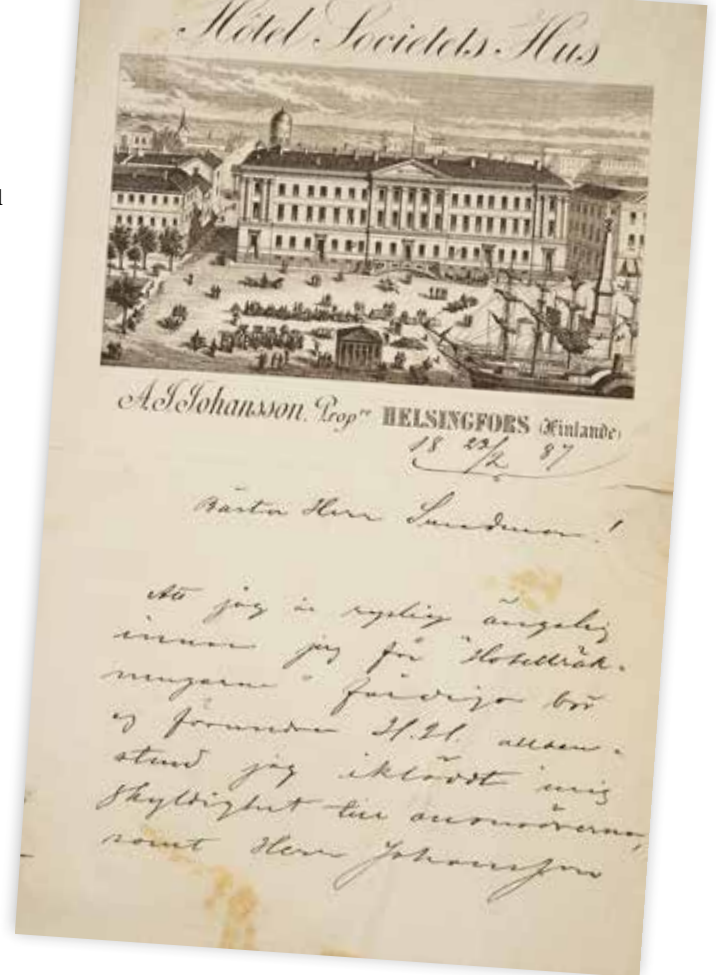 Hôtel Societets Hus
A. J. Johansson. Prop^re HELSINGFORS (Finlande)
18 23/2 87
Bästa Herr Sundman!
Att jag är ryslig ängslig
innan jag får "Hotellräk-
ningarne" färdiga bör
ej förundra H.H. allden-
stund jag iklädt mig
skyldighet till annonsörerna,
samt Herr Johansson